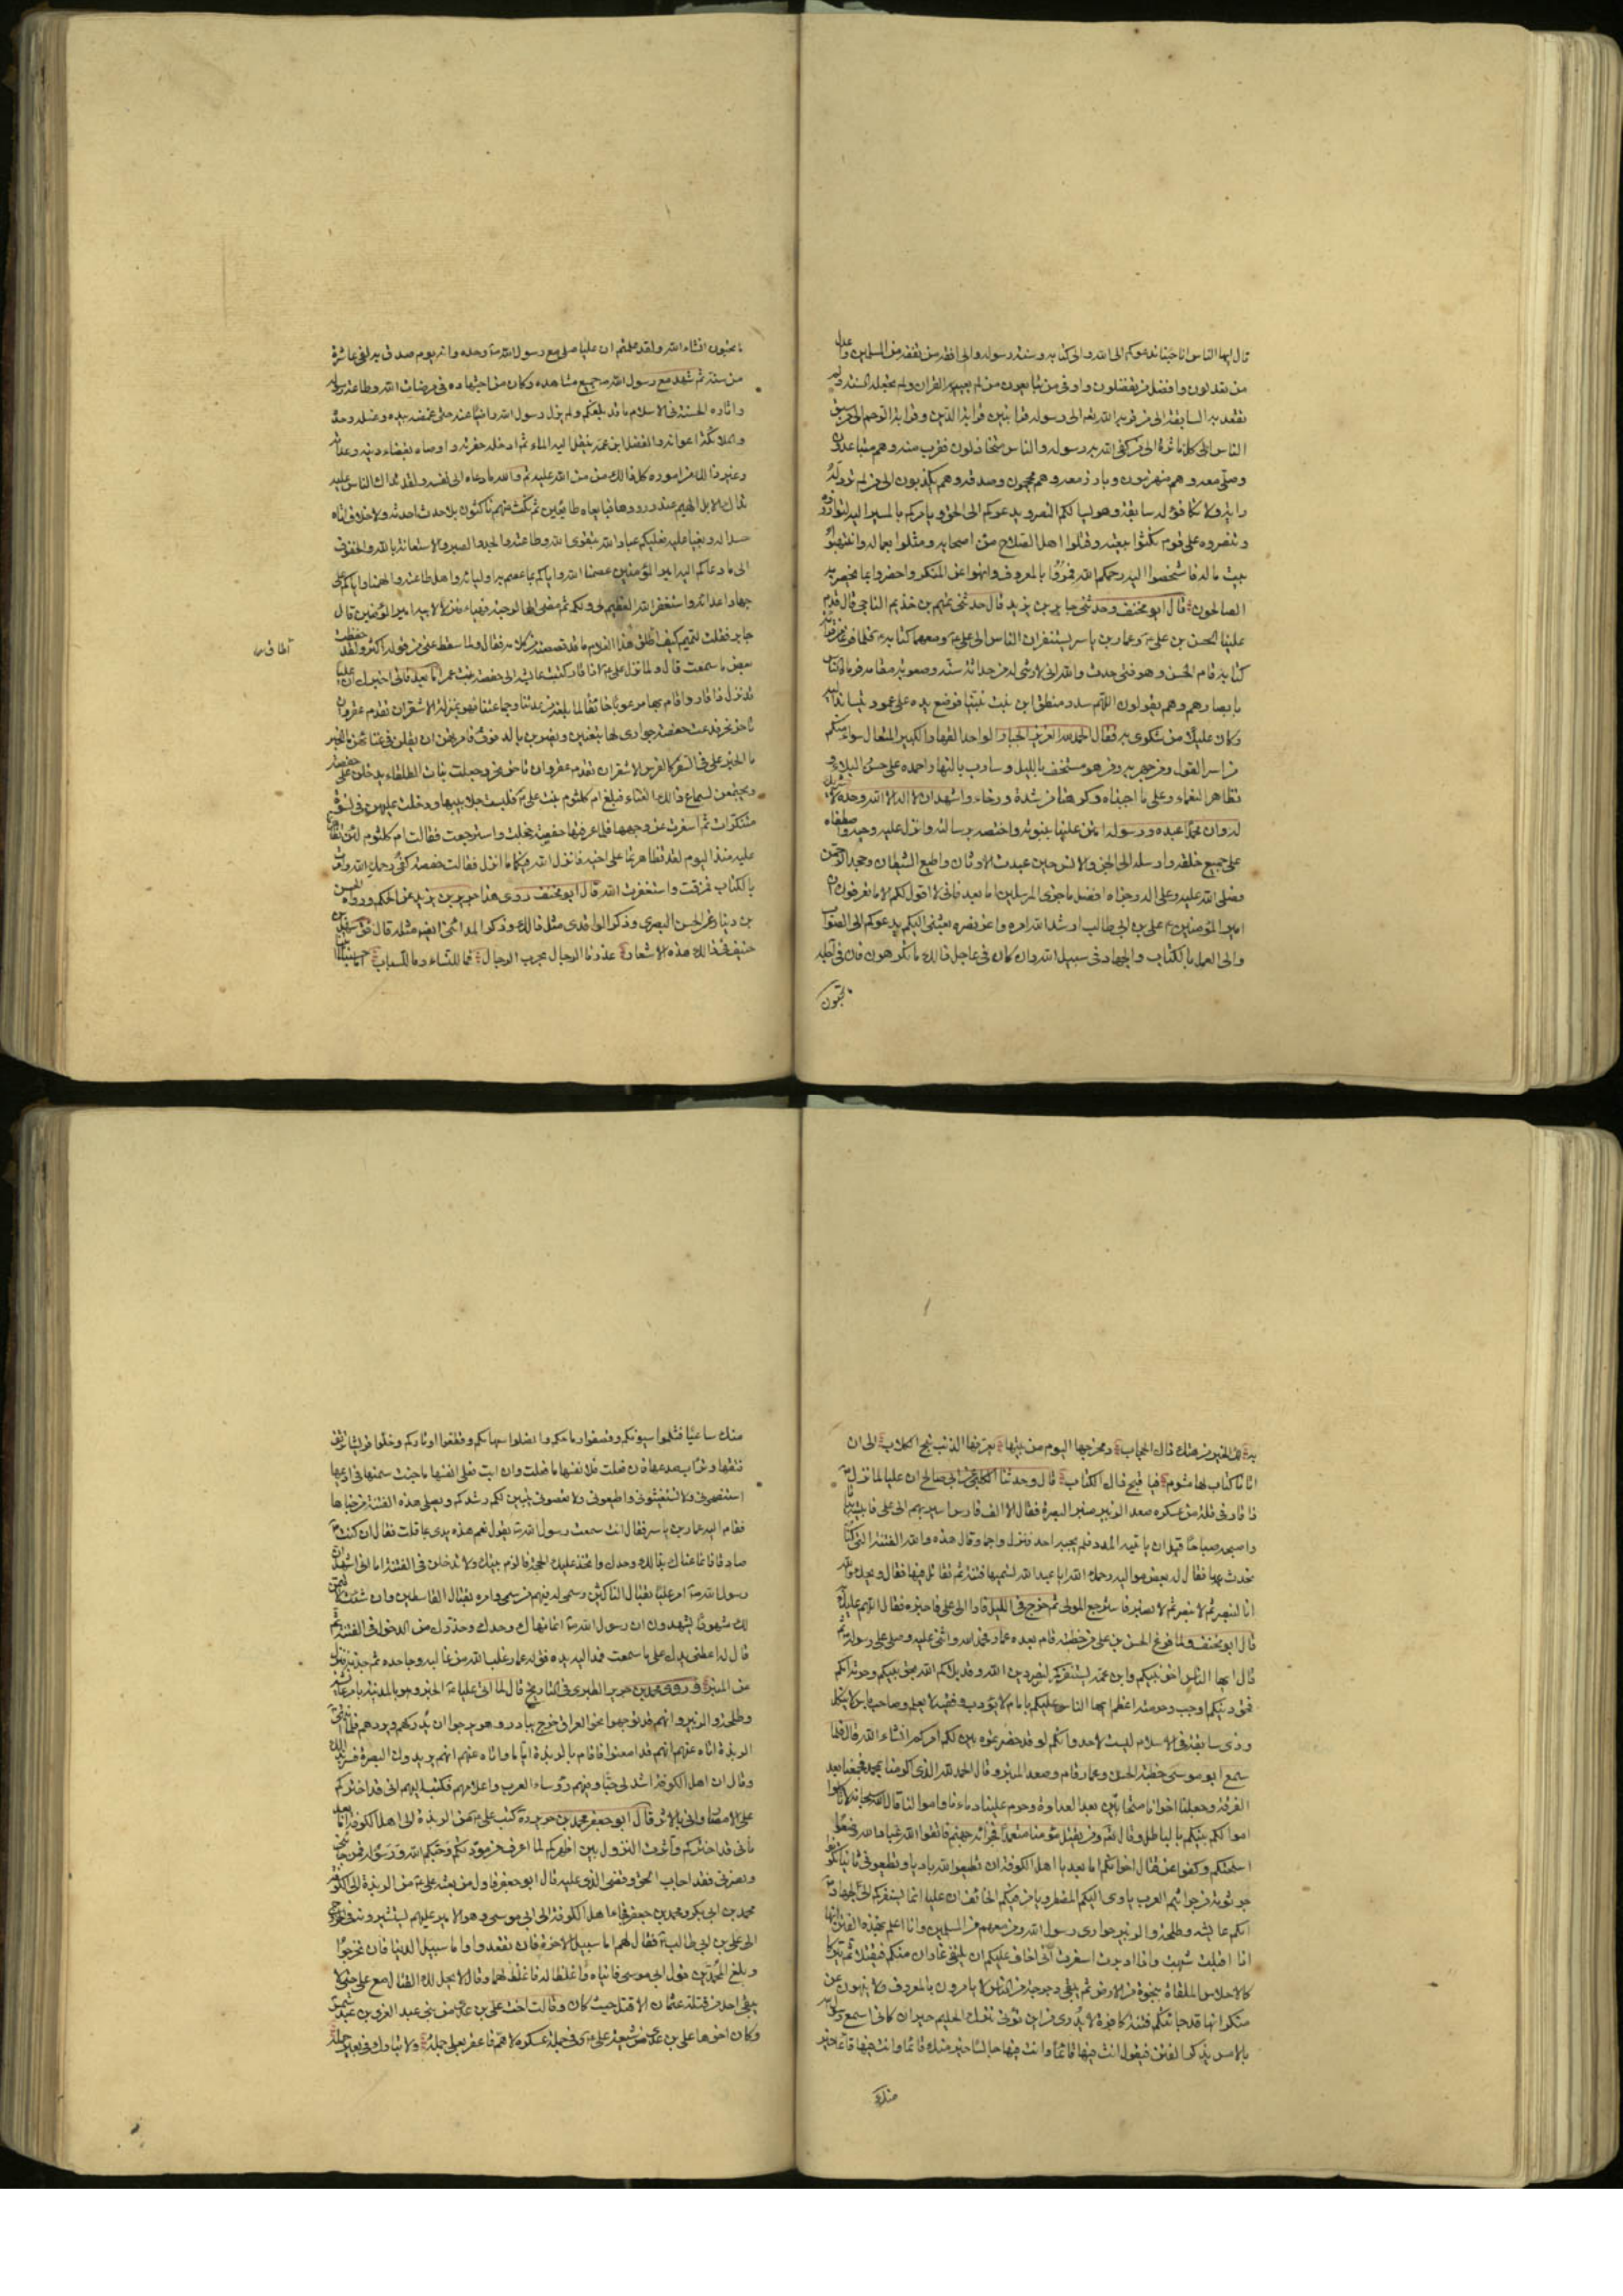 قال ايها الناس انا جئنا ندعوكم الى الله والى كتابه وسنة رسوله والى افقه من تفقه من المسلمين واعدل
من تعدلون وافضل من تفضلون واوفى من تبايعون من لم يعيه القران ولم تجهله السنة ولم
تقعد به السابقة الى من قربه الله تعالى الى رسوله قرابتين قرابة الدين وقرابة الرحم الى من سبق
الناس الى كل ماثرة الى من كفى الله به رسوله والناس متخاذلون فقرب منه وهم متباعدون
وصلى معه وهم مشركون وبارز معه وهم محجمون وصدقه وهم يكذبون الى من لم ترد له
راية ولا تكافى له سابقة وهو يسالكم النصر ويدعوكم الى الحق ويامركم بالمسير اليه لتوازروه
وتنصروه على قوم نكثوا بيعته وقتلوا اهل الصلاح من اصحابه ومثلوا بعماله وانتهبوا
بيت ماله فاشخصوا اليه رحمكم الله فمروا بالمعروف وانهوا عن المنكر واحضروا بما يحضر به
الصالحون قال ابو مخنف وحدثنى جابر بن يزيد قال حدثنى تميم بن حذيم الناجى قال قدم
علينا الحسن بن على ع وعمار بن ياسر يستنفران الناس الى على ع ومعهما كتابه فلما فرغا من قراءة
كتابه قام الحسن وهو فتى حدث والله انى لارثى له من حداثة سنه وصعوبة مقامه فرماه الناس
بابصارهم وهم يقولون اللهم سدد منطق ابن بنت نبينا فوضع يده على عمود يتساند اليه
وكان عليلا من شكوى به فقال الحمد لله العزيز الجبار الواحد القهار الكبير المتعال سواء منكم
من اسر القول ومن جهر به ومن هو مستخف بالليل وسارب بالنهار احمده على حسن البلاء و
تظاهر النعماء وعلى ما احببناه وكرهنا من شدة ورخاء واشهد ان لا اله الا الله وحده لا شريك
له وان محمدا عبده ورسوله امتن علينا بنبوته واختصه برسالته وانزل عليه وحيه واصطفاه
على جميع خلقه وارسله الى الجن والانس حين عبدت الاوثان واطيع الشيطان وجحد الرحمن
فصلى الله عليه وعلى اله وجزاه افضل ما جزى المرسلين اما بعد فانى لا اقول لكم الا ما تعرفون ان
امير المؤمنين ع على بن ابى طالب ارشد الله امره واعز نصره بعثنى اليكم يدعوكم الى الصواب
والى العمل بالكتاب والجهاد فى سبيل الله وان كان فى عاجل ذالك ما تكرهون فان فى آجله
تحبون
ما تحبون انشاء الله ولقد علمتم ان عليا صلى مع رسول الله ص وحده وانه يوم صدق به لفى عاشرة
من سنه ثم شهد مع رسول الله ص جميع مشاهده وكان من اجتهاده فى مرضات الله وطاعة رسوله
واثاره الحسنة فى الاسلام ما قد بلغكم ولم يزل رسول الله راضيا عنه حتى غمضه بيده وغسله وحده
والملائكة اعوانه والفضل ابن عمه ينقل اليه الماء ثم ادخله حفرته واوصاه بقضاء دينه وعداته
وغير ذالك من اموره كل ذالك من من الله عليه ثم والله ما دعاه الى نفسه ولقد تداك الناس عليه
تداك الابل الهيم عند ورودها فبايعاه طائعين ثم نكث منهم ناكثون بلا حدث احدثه ولا خلاف اتاه
حسدا له وبغيا عليه فعليكم عباد الله بتقوى الله وطاعته والجد والصبر والاستعانة بالله والخفوف
الى ما دعاكم اليه امير المؤمنين عصمنا الله واياكم بما عصم به اوليائه واهل طاعته والهمنا واياكم على
جهاد اعدائه واستغفر الله العظيم لى ولكم ثم مضى الى الرحبة فهياء منزلا لابيه امير المؤمنين قال
جابر فقلت لتميم كيف اطلق هذا الغلام ما قد قصصته من كلامه فقال ولما سقط عنى من قوله اكثر ولقد حفظت
اطاق ص
بعض ما سمعت قال ولما نزل على ع ذا قار كتبت عائشة الى حفصة بنت عمر اما بعد فانى اخبرك ان عليا
قد نزل ذا قار واقام بها مرعوبا خائفا لما بلغه من عدتنا وجماعتنا فهو بمنزلة الاشقر ان تقدم عقر وان
تاخر نحر فدعت حفصة جوارى لها يتغنين ويضربن بالدفوف فامرتهن ان يقلن فى غنائهن ما الخبر
ما الخبر على فى السفر كالفرس الاشقر ان تقدم عقر وان تاخر نحر وجعلت بنات الطلقاء يدخلن على حفصة
ويجتمعن لسماع ذالك الغناء فبلغ ام كلثوم بنت على ع فلبست جلابيبها ودخلت عليهن فى نسوة
متنكرات ثم اسفرت عن وجهها فلما عرفتها حفصة خجلت واسترجعت فقالت ام كلثوم لئن تظاهرتما
عليه منذ اليوم لقد تظاهرتما على اخيه فانزل الله فيكما ما انزل فقالت حفصة كفى رحمك الله وامرت
بالكتاب فمزقت واستغفرت الله قال ابو مخنف روى هذا جرير بن يزيد عن الحكم ورواه الحسن
بن دينار عن الحسن البصرى وذكر الواقدى مثل ذالك وذكر المدائنى ايضا مثله قال فقال سهل بن
حنيف فى ذالك هذه الاشعار عذرنا الرجال بحرب الرجال فما للنساء وما للسباب اما حسبنا ما اتينا
به لك الخير من هتك ذاك الحجاب ومخرجها اليوم من بيتها يعرفها الذنب نبح الكلاب الى ان
اتانا كتاب لها مشوم فيا قبح ذاك الكتاب قال وحدثنا الكلبى عن ابى صالح ان عليا لما نزل
ذا قار فى قلة من عسكره صعد الزبير منبر البصرة فقال الا الف فارس اسير بهم الى على فابيته بياتا
واصبحه صباحا قبل ان ياتيه المدد فلم يجبه احد فنزل واجما وقال هذه والله الفتنة التى كنا
نحدث بها فقال له بعض مواليه رحمك الله ابا عبد الله تسميها فتنة ثم نقاتل فيها فقال ويحك والله
انا لنبصر ثم لا نصبر فاسترجع المولى ثم خرج فى الليل فارا الى على فاخبره فقال اللهم عليك به
قال ابو مخنف ولما فرغ الحسن بن على من خطبته قام بعده عمار فحمد الله واثنى عليه وصلى على رسوله ثم
قال ايها الناس اخو نبيكم وابن عمه يستنفركم لنصر دين الله وقد بلاكم الله بحق دينكم وحرمة امكم
فحق دينكم اوجب وحرمته اعظم ايها الناس عليكم بامام لا يؤدب وفقيه لا يعلم وصاحب باس لا ينكل
وذى سابقة فى الاسلام ليست لاحد وانكم لو قد حضرتموه بين لكم امركم انشاء الله قال فلما
سمع ابو موسى خطبة الحسن وعمار قام وصعد المنبر وقال الحمد لله الذى اكرمنا بمحمد فجمعنا بعد
الفرقة وجعلنا اخوانا متحابين بعد العداوة وحرم علينا دماءنا واموالنا قال الله سبحانه ولا تاكلوا
اموالكم بينكم بالباطل وقال تعالى ومن يقتل مؤمنا متعمدا فجزائه جهنم فاتقوا الله عباد الله وضعوا
اسلحتكم وكفوا عن قتال اخوانكم اما بعد يا اهل الكوفة ان تطيعوا الله باديا وتطيعونى ثانيا تكونوا
جرثومة من جراثيم العرب ياوى اليكم المضطر ويامن فيكم الخائف ان عليا انما يستنفركم لجهاد
امكم عائشة وطلحة والزبير حوارى رسول الله ومن معهم من المسلمين وانا اعلم بهذه الفتن انها
اذا اقبلت شبهت واذا ادبرت اسفرت انى اخاف عليكم ان يلتقى غاران منكم فيقتتلا ثم يتركا
كالاحلاس الملقاة بنجوة من الارض ثم يبقى رجرجة من الناس لا يامرون بالمعروف ولا ينهون عن
منكر انها قد جاءتكم فتنة كافرة لا يدرى من اين تؤتى تترك الحليم حيران كانى اسمع رسول الله
بالامس يذكر الفتن فيقول انت فيها نائما وانت فيها جالسا خير منك قائما وانت فيها قائما خير
منك
منك ساعيا فثلموا سيوفكم وقصفوا رماحكم وانصلوا سهامكم وقطعوا اوتاركم وخلوا قريشا ترتق
فتقها وتراب صدعها فان فعلت فلانفسها ما فعلت وان ابت فعلى انفسها ما جنت سمنها فى اديمها
استنصحونى ولا تستغشونى واطيعونى ولا تعصونى يتبين لكم رشدكم ويصلى هذه الفتنة من جناها
فقام اليه عمار بن ياسر فقال انت سمعت رسول الله ص يقول نعم هذه يدى بما قلت فقال ان كنت
صادقا فانما عناك بذالك وحدك واتخذ عليك الحجة فالزم بيتك ولا تدخلن فى الفتنة اما انى اشهد ان
رسول الله ص امر عليا بقتال الناكثين وسمى له فيهم من سمى وامره بقتال القاسطين وان شئت لاقيمن
لك شهودا يشهدون ان رسول الله ص انما نهاك وحدك وحذرك من الدخول فى الفتنة ثم
قال له اعطنى يدك على ما سمعت فمد اليه يده فقال له عمار غلب الله من غالبه وجاحده ثم جذبه فنزل
عن المنبر وروى محمد بن جرير الطبرى فى التاريخ قال لما اتى عليا ع الخبر وهو بالمدينة بامر عائشة
وطلحة والزبير وانهم قد توجهوا نحو العراق خرج يبادر وهو يرجوا ان يدركهم ويردهم فلما انتهى
الربذة اتاه عنهم انهم قد امعنوا فاقام بالربذة اياما واتاه عنهم انهم يريدون البصرة فسر بذالك
وقال ان اهل الكوفة اشد لى حبا وفيهم رؤساء العرب واعلامهم فكتب اليهم انى قد اخترتكم
على الامصار وانى بالاثر قال ابو جعفر محمد بن جرير ره كتب على ع من الربذة الى اهل الكوفة اما بعد
فانى قد اخترتكم واثرت النزول بين اظهركم لما اعرف من مودتكم وحبكم الله ورسوله فمن جاءنى
ونصرنى فقد اجاب الحق وقضى الذى عليه قال ابو جعفر فاول من بعثه على ع من الربذة الى الكوفة
محمد بن ابى بكر ومحمد بن جعفر فجاء اهل الكوفة الى ابى موسى وهو الامير عليهم ليستشيروه فى الخروج
الى على بن ابى طالب ع فقال لهم اما سبيل الاخرة فان تقعدوا واما سبيل الدنيا فان تخرجوا
وبلغ المحمدين قول ابى موسى فاتياه واغلظا له فاغلظ لهما وقال لا يحل لك القتال مع على حتى لا
يبقى احد من قتلة عثمان الا قتل حيث كان وقالت اخت على بن عدى من بنى عبد العزى بن عبد شمس
وكان اخوها على بن عدى من شيعة على ع وفى جملة عسكره لا هم فاعقر بعلى جمله ولا تبارك فى بعير حمله